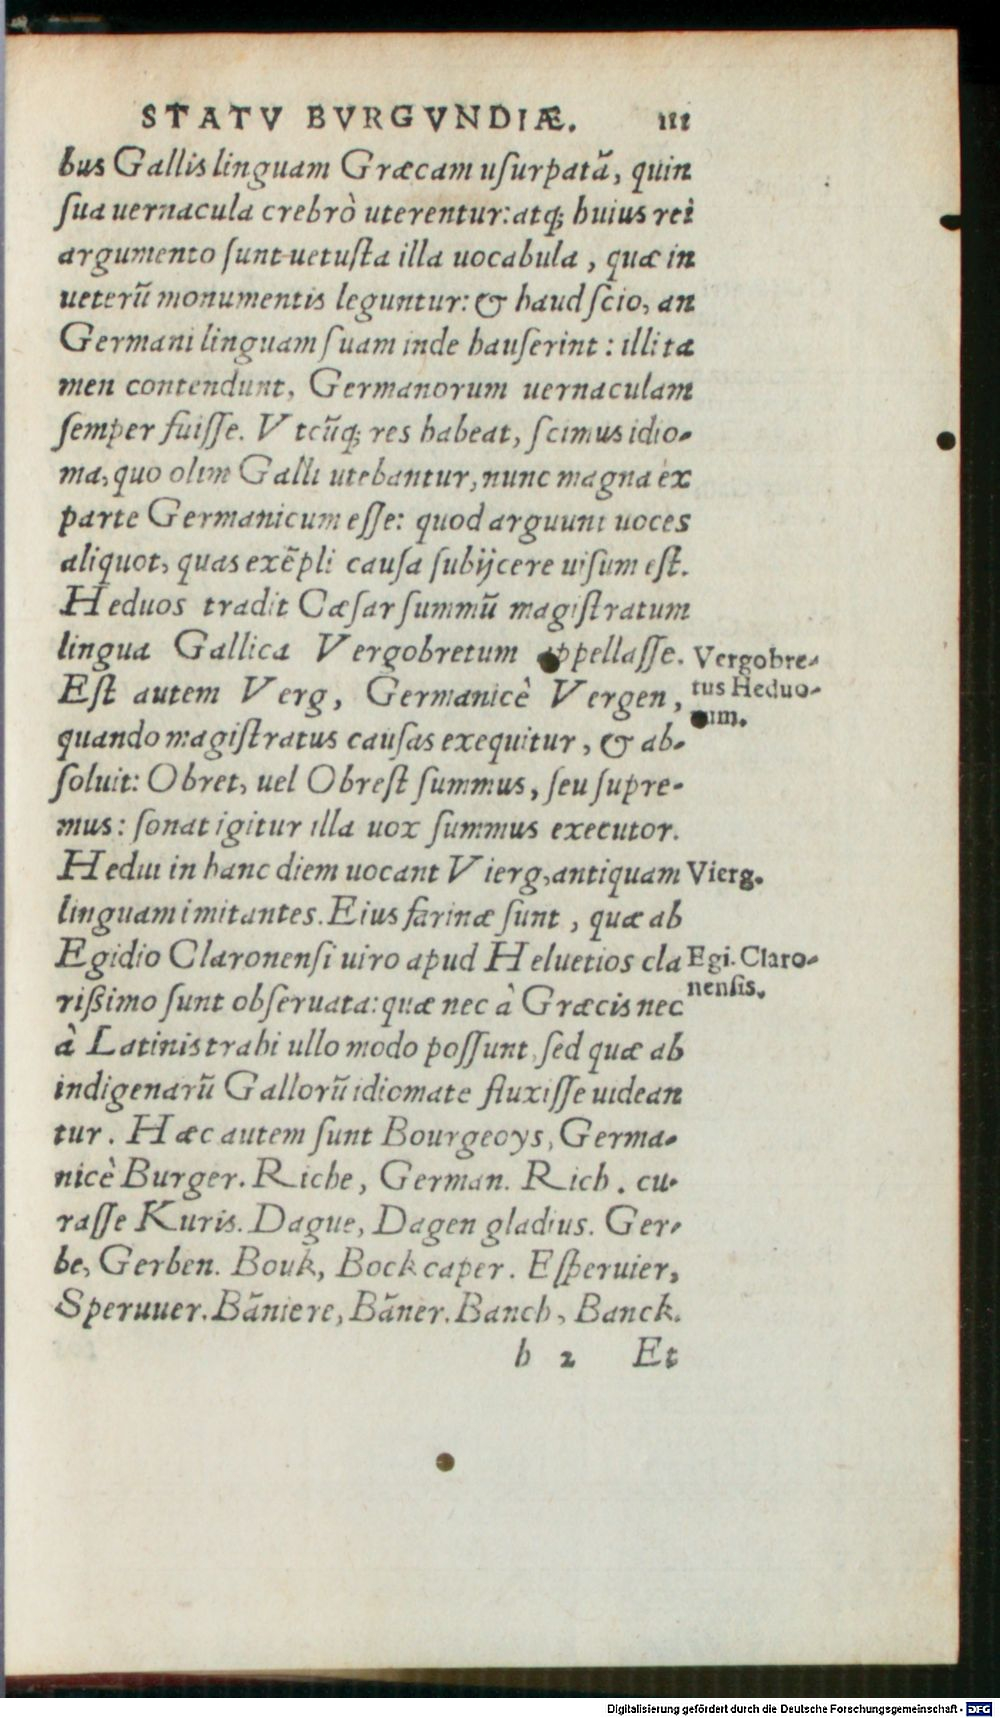 STATV BVRGVNDIÆ. 111
bus Gallis linguam Græcam uſurpatã, quin
ſua uernacula crebrò uterentur: atq; huius rei
argumento ſunt uetuſta illa uocabula, quæ in
ueterũ monumentis leguntur: & haud ſcio, an
Germani linguam ſuam inde hauſerint: illi ta
men contendunt, Germanorum uernaculam
ſemper fuiſſe. Vtcũq; res habeat, ſcimus idio-
ma, quo olim Galli utebantur, nunc magna ex
parte Germanicum eſſe: quod arguunt uoces
aliquot, quas exẽpli cauſa ſubijcere uiſum eſt.
Heduos tradit Cæſar ſummũ magiſtratum
lingua Gallica Vergobretum appellaſſe.
Vergobre-
tus Heduo-
rum.
Eſt autem Verg, Germanicè Vergen,
quando magiſtratus cauſas exequitur, & ab-
ſoluit: Obret, uel Obreſt ſummus, ſeu ſupre-
mus: ſonat igitur illa uox ſummus executor.
Hedui in hanc diem uocant Vierg, antiquam
Vierg.
linguam imitantes. Eius farinæ ſunt, quæ ab
Egidio Claronenſi uiro apud Heluetios cla
Egi. Claro-
nenſis.
rißimo ſunt obſeruata: quæ nec à Græcis nec
à Latinis trahi ullo modo poſſunt, ſed quæ ab
indigenarũ Gallorũ idiomate fluxiſſe uidean
tur. Hæc autem ſunt Bourgeoys, Germa-
nicè Burger. Riche, German. Rich. cu-
raſſe Kuris. Dague, Dagen gladius. Ger-
be, Gerben. Bouk, Bock caper. Eſperuier,
Speruuer. Bãniere, Bãner. Banch, Banck.
b 2 Et
Digitalisierung gefördert durch die Deutsche Forschungsgemeinschaft - DFG